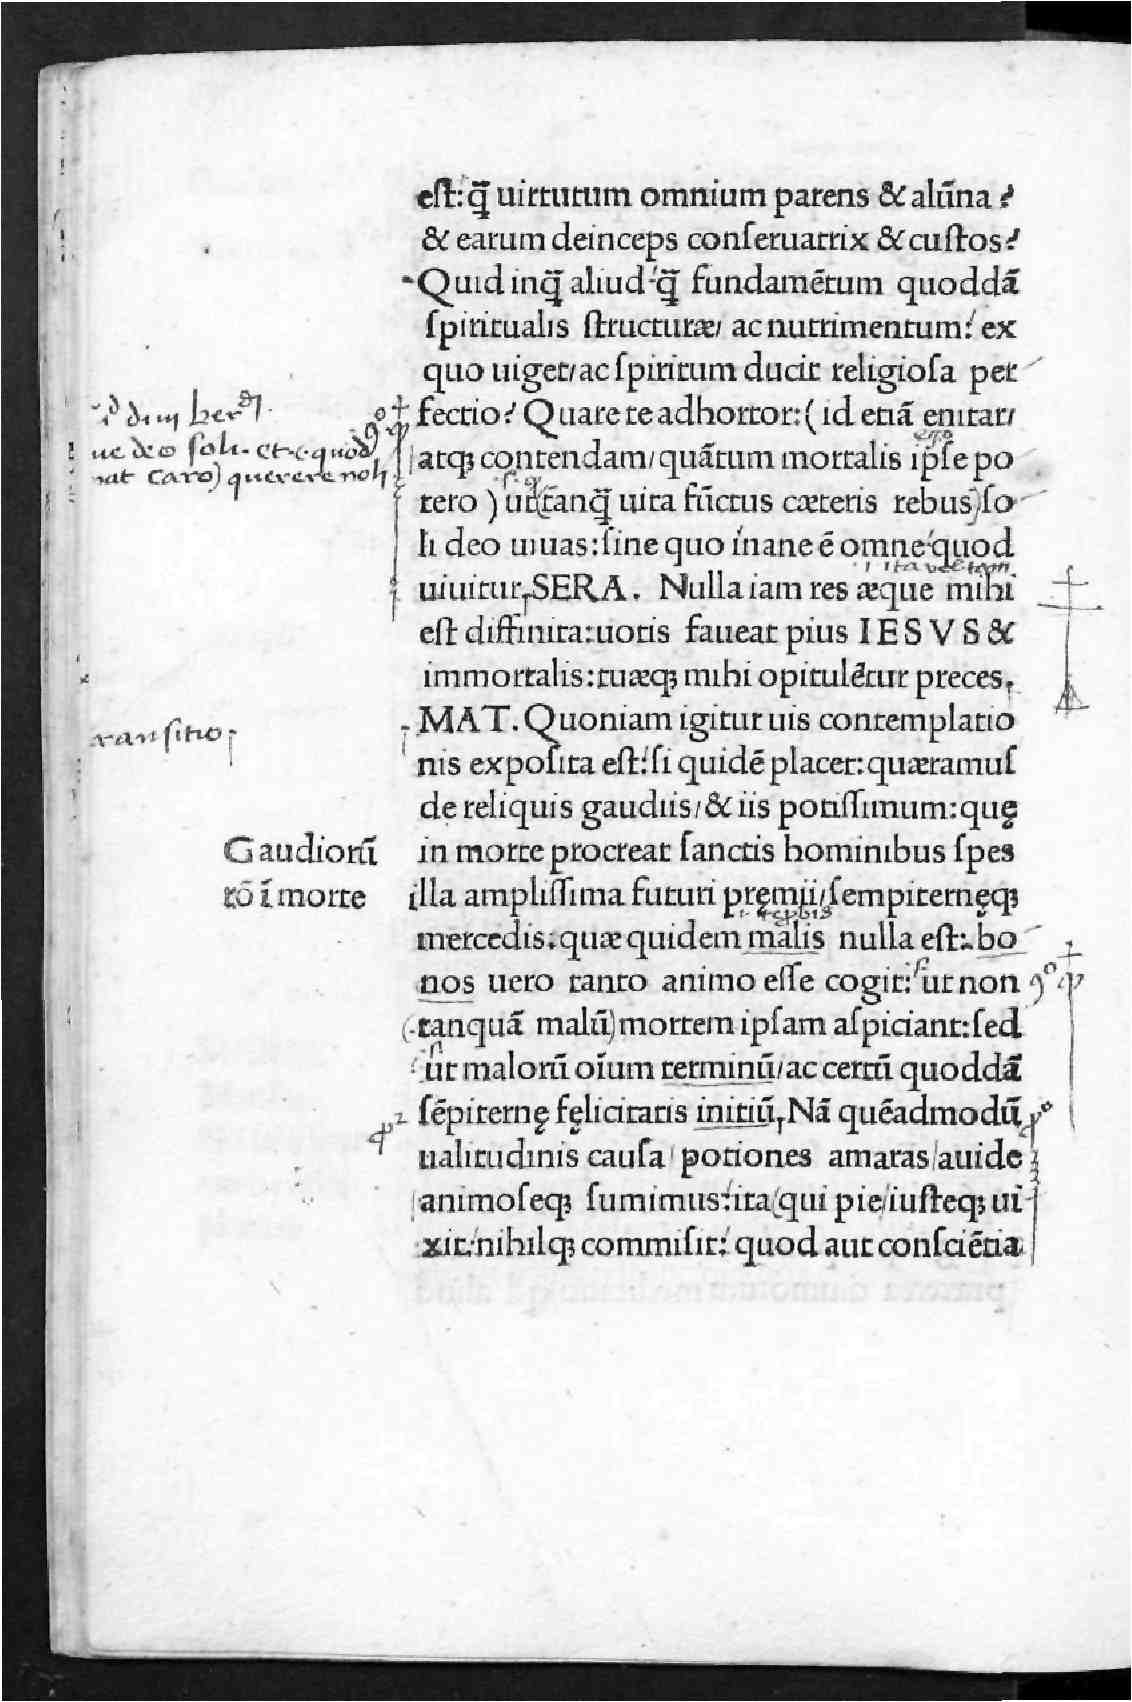 est: q̃ uirtutum omnium parens & alũna?
& earum deinceps conseruatrix & custos?
Quid inq̃ aliud q̃ fundamẽtum quoddã
spiritualis structuræ/ ac nutrimentum? ex
quo uiget/ ac spiritum ducit religiosa per
fectio? Quare te adhortor: (id etiã enitar/
atqꝫ contendam/ quãtum mortalis ipse po
tero) ut (tanq̃ uita fũctus cæteris rebus) so
li deo uiuas: sine quo inane ẽ omne quod
uiuitur, SERA. Nulla iam res æque mihi
est diffinita: uotis faueat pius IESVS &
immortalis: tuæqꝫ mihi opitulẽtur preces,
MAT. Quoniam igitur uis contemplatio
nis exposita est: si quidẽ placet: quæramus
de reliquis gaudiis/ & iis potissimum: quę
Gaudiorũ
rõ ĩ morte
in morte procreat sanctis hominibus spes
illa amplissima futuri pręmii/ sempiternęqꝫ
mercedis. quæ quidem malis nulla est: bo
nos uero tanto animo esse cogit: ut non
(tanquã malũ) mortem ipsam aspiciant: sed
ut malorũ oĩum terminũ/ ac certũ quoddã
sẽpiternę fęlicitatis initiũ, Nã quẽadmodũ
ualitudinis causa potiones amaras/ auide
animoseqꝫ sumimus: ita (qui pie/ iusteqꝫ ui
xit: nihilqꝫ commisit: quod aut consciẽtia
ue deo soli. et quod
nat caro) querere noli
ransitio